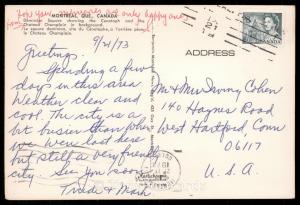 Hope your memories are only happy ones
MONTREAL, QUE., CANADA
Dominion Square showing the Cenotaph and
Chateau Champlain in background.
Le square dominion, site du Cénotaphe, a l'arrière plan,
le Chateau Champlain.
CANADA
9/21/73
Greetings.
Spending a few
days in this area.
Weather clear and
cool. The city is a
bit busier than when
we were last here
but still a very friendly
city. See you soon
ADDRESS
Mr & Mrs Irving Cohen
140 Haynes Road
West Hartford, Conn
06117
U. S. A.